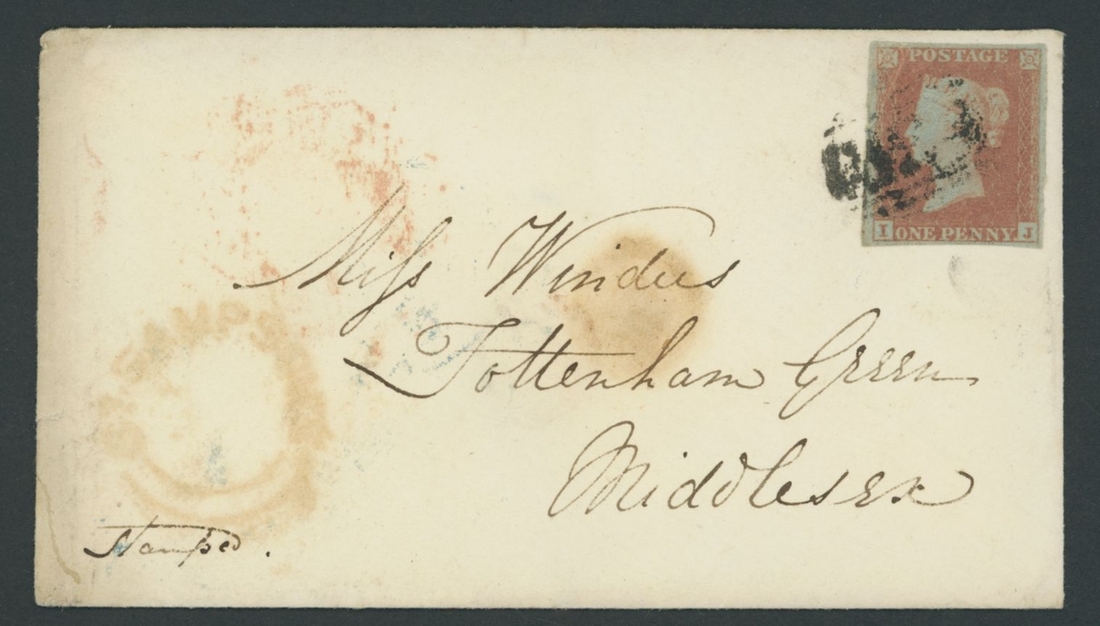 POSTAGE
I ONE PENNY J
Miss Windus
Tottenham Green
Middlesex
Stamped.